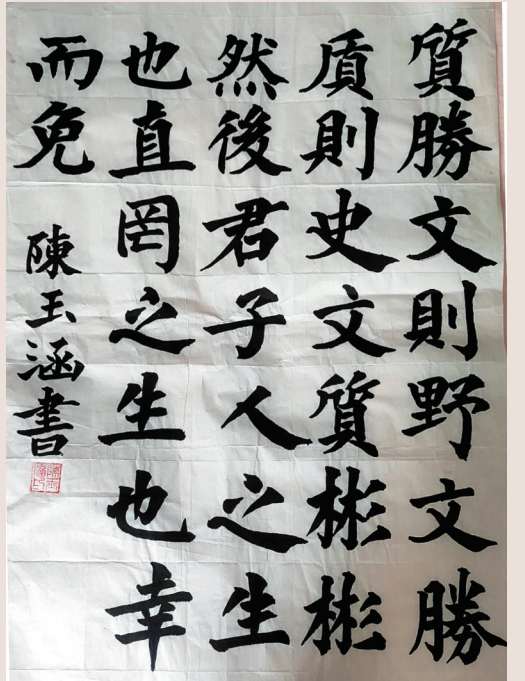 質勝文則野文勝
貭則史文質彬彬
然後君子人之生
也直罔之生也幸
而免
陳玉涵書